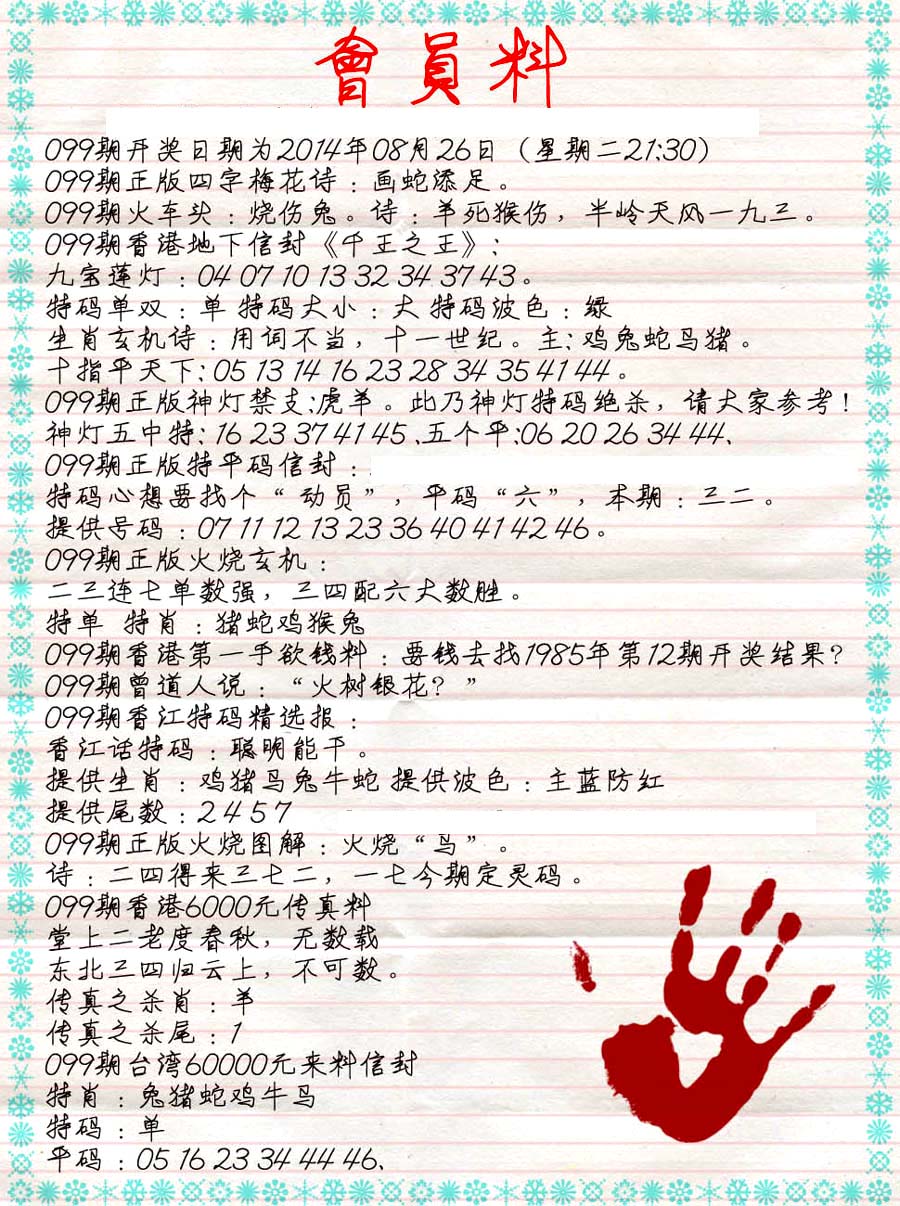 會員料
099期开奖日期为2014年08月26日（星期二21:30）
099期正版四字梅花诗：画蛇添足。
099期火车头：烧伤兔。诗：羊死猴伤，半岭天风一九三。
099期香港地下信封《千王之王》:
九宝莲灯：04 07 10 13 32 34 37 43。
特码单双：单 特码大小：大 特码波色：绿
生肖玄机诗：用词不当，十一世纪。主:鸡兔蛇马猪。
十指平天下:05 13 14 16 23 28 34 35 41 44。
099期正版神灯禁支:虎羊。此乃神灯特码绝杀，请大家参考!
神灯五中特:16 23 37 41 45、五个平:06 20 26 34 44、
099期正版特平码信封：
特码心想要找个“动员”，平码“六”，本期：三二。
提供号码：07 11 12 13 23 36 40 41 42 46。
099期正版火烧玄机：
二三连七单数强，三四配六大数胜。
特单 特肖：猪蛇鸡猴兔
099期香港第一手欲钱料：要钱去找1985年第12期开奖结果?
099期曾道人说：“火树银花？”
099期香江特码精选报：
香江话特码：聪明能干。
提供生肖：鸡猪马兔牛蛇 提供波色：主蓝防红
提供尾数：2 4 5 7
099期正版火烧图解：火烧“马”。
诗：二四得来三七二，一七今期定灵码。
099期香港6000元传真料
堂上二老度春秋，无数载
东北三四归云上，不可数。
传真之杀肖：羊
传真之杀尾：1
099期台湾60000元来料信封
特肖：兔猪蛇鸡牛马
特码：单
平码：05 16 23 34 44 46、